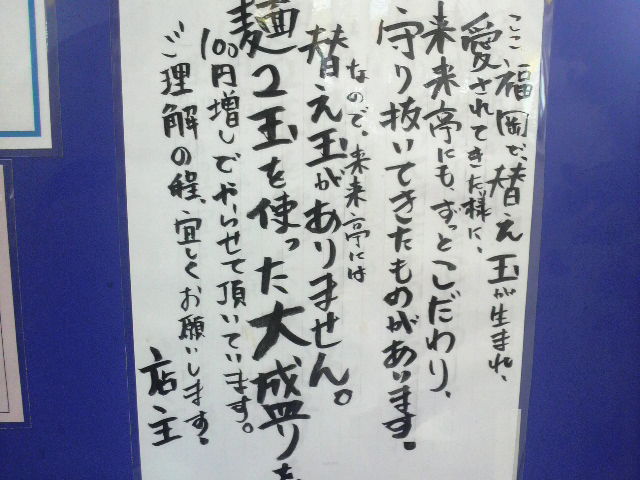 ここ、福岡で、替え玉が生まれ、
愛されてきた様に、
来来亭にも、ずっとこだわり、
守り抜いてきたものがあります。
なので、来来亭には
替え玉がありません。
麺2玉を使った大盛りを
100円増しでやらせて頂いています。
ご理解の程、宜しくお願いします。
店主